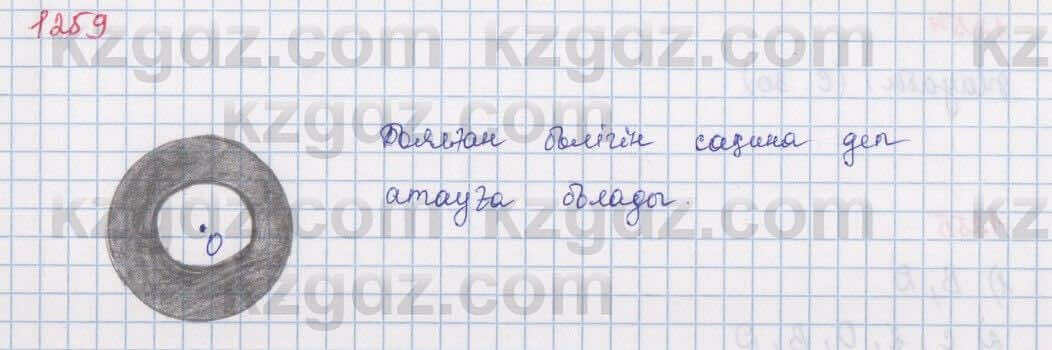 1259
kzgdz.com kzgdz.com kz
kzgdz.com kzgdz.com
Боялған бөлігін сақина деп
атауға болады.
kzgdz.com kzgdz.com kz
O
kzgdz.com kzgdz.com